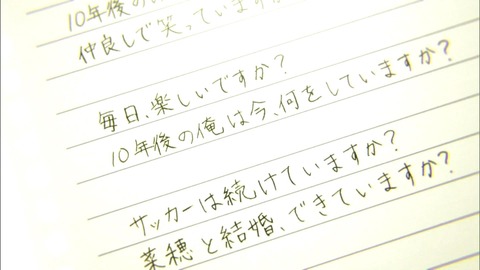 10年後の
仲良しで笑っていますか
毎日、楽しいですか?
10年後の俺は今、何をしていますか?
サッカーは続けていますか?
菜穂と結婚、できていますか?